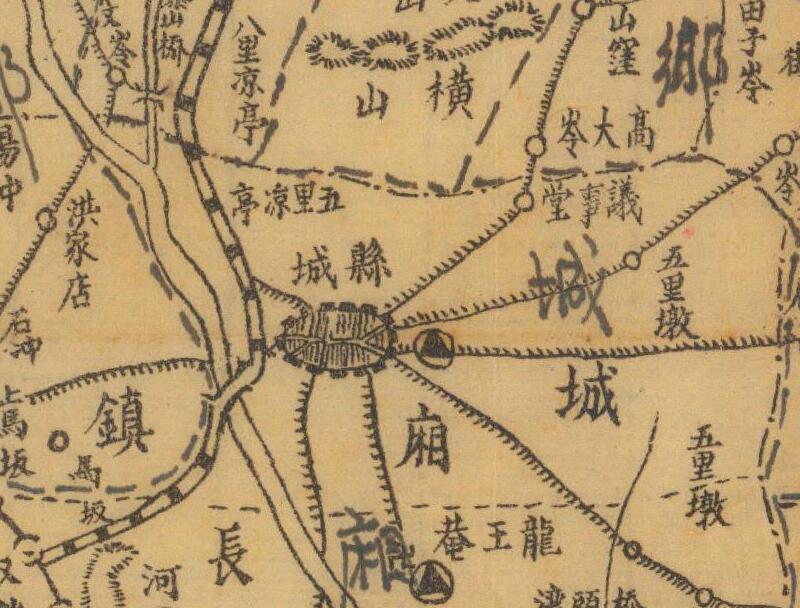 八里凉亭
橫山
山窪
高大岺
田子岺
鄉
五里凉亭
議事堂
岺
洪家店
縣城
城
五里墩
石冲
城
廂
鎮
上馬坂
馬坂
五里墩
長
龍王菴
廂
河